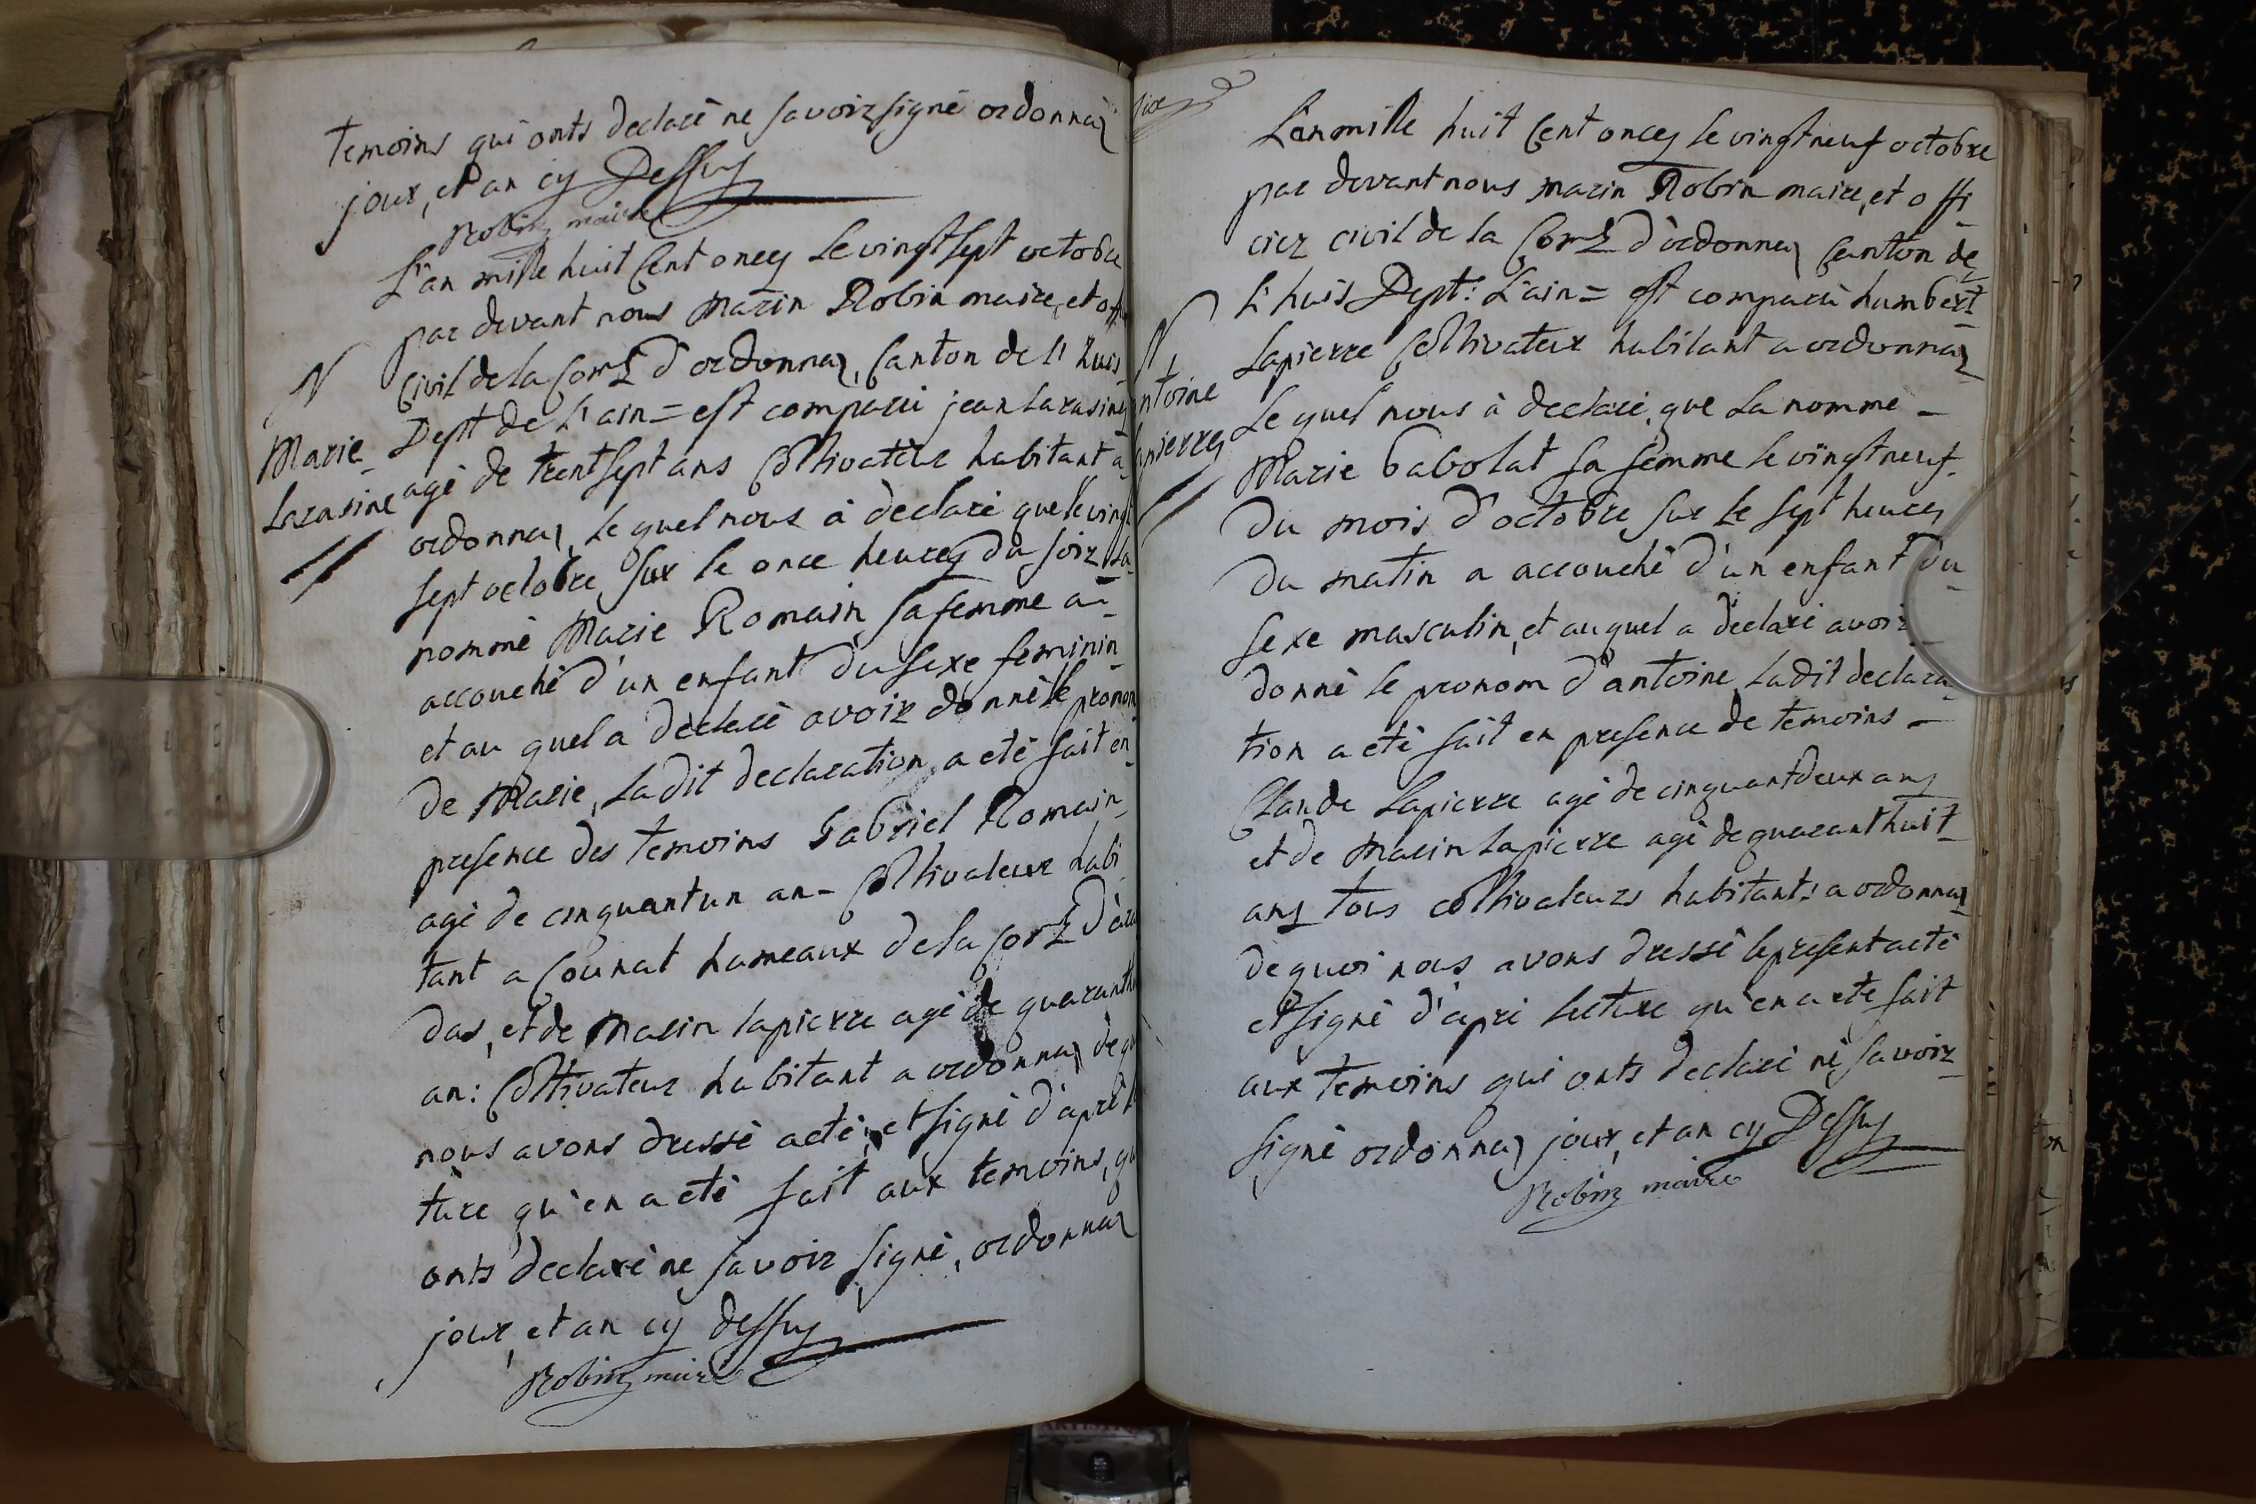 temoins qui onts declaré ne savoir signé ordonnaz
jour, et an cy Dessus
Robin maire
L'an mille huit Cent onces le vingt sept octobre
par devant nous Marin Robin maire, et off
Civil de la Com.e d'ordonnaz, Canton de l'huis
N
Dept de L'ain = est comparu jean Larasine
Marie
agé de trent sept ans Coltivateur habitant a
Larasine
ordonnaz, le quel nous à declaré que le vingt
sept octobre sur le once heures du soir La
nommé Marie Romain sa femme a
accouché d'un enfant du sexe feminin
et au quel a declaré avoir donné le pronom
de Marie, Ladit declaration a eté fait en
presence des temoins Gabriel Romain
agé de cinquant un an - Coltivateur habi
tant a Counat hameaux de la Com.e d'ara
das, et de Marin lapierre agé de quarant
an: Coltivateur habitant a ordonnaz de qu
nous avons dressé acté, et signé d'apré l
ture qu'en a eté fait aux temoins, qu
onts declaré ne savoir signé, ordonnaz
jour, et an cy dessus
Robin maire
L'an mille huit Cent onces le vingt neuf octobre
par devant nous Marin Robin maire, et offi
cier civil de la Com.e d'ordonnaz Canton de
L'huis Dept: L'ain = est comparu humbert
N
Lapierre Coltivateur habitant a ordonnaz
ntoine
Le quel nous à declaré, que La nomme -
apierres
Marie babolat sa femme le vingt neuf
Du mois d'octobre sur le sept heures
Du matin a accouché d'un enfant du
sexe masculin, et au quel a declaré avoir
donné le pronom d'antoine Ladit declara
tion a eté fait en presence de temoins -
Claude Lapierre agé de cinquant deux ans
et de Marin Lapierre agé de quarant huit
ans tous coltivateurs habitants a ordonnaz
de quoi nous avons dressé le present acté
et signé d'apré lecture qu'en a eté fait
aux temoins qui onts declaré ne savoir
signé ordonnaz jour, et an cy Dessus
Robin maire